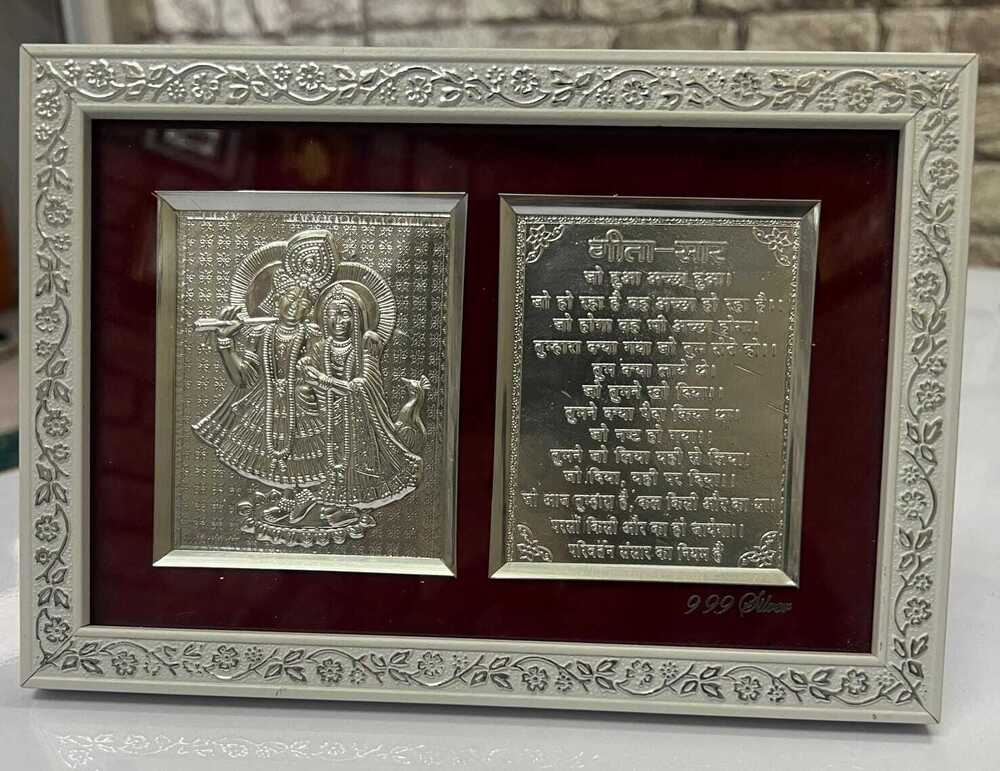 गीता-सार
जो हुआ अच्छा हुआ।
जो हो रहा है वह अच्छा हो रहा है।।
जो होगा वह भी अच्छा होगा।
तुम्हारा क्या गया जो तुम रोते हो।।
तुम क्या लाये थे।
जो तुमने खो दिया।।
तुमने क्या पैदा किया था।
जो नष्ट हो गया।।
तुमने जो लिया यही से लिया।
जो दिया, यही पर दिया।
जो आज तुम्हारा है, कल किसी और का था।
परसों किसी और का हो जायेगा।।
परिवर्तन संसार का नियम है
999 Silver